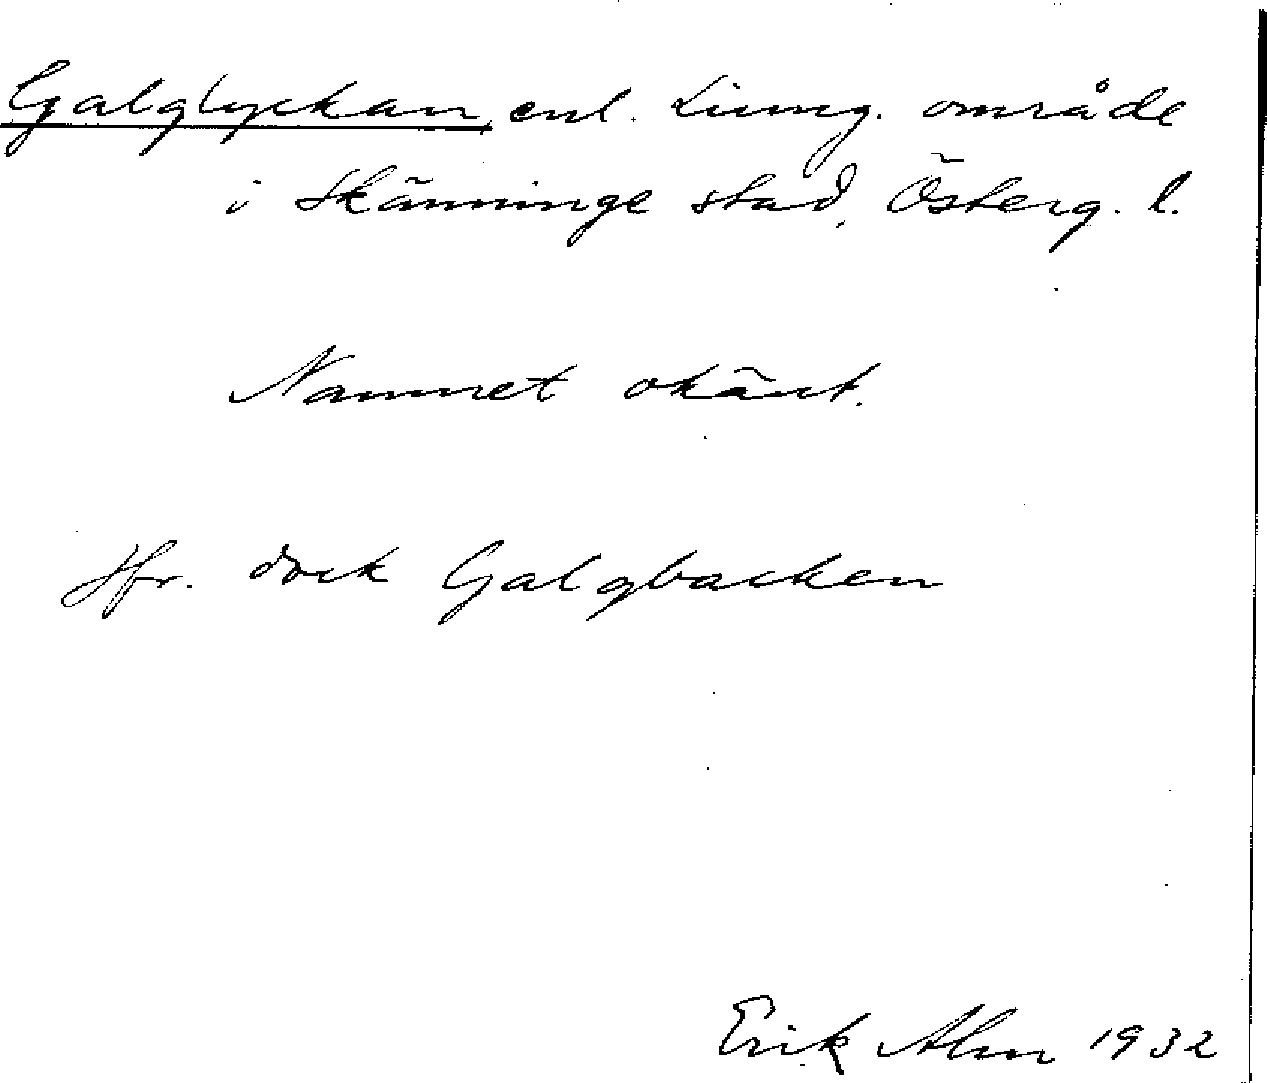 Galglyckan, enl. Liung. område
i Skänninge stad, Österg. l.
Namnet okänt.
Jfr. dock Galgbacken
Erik Alm 1932